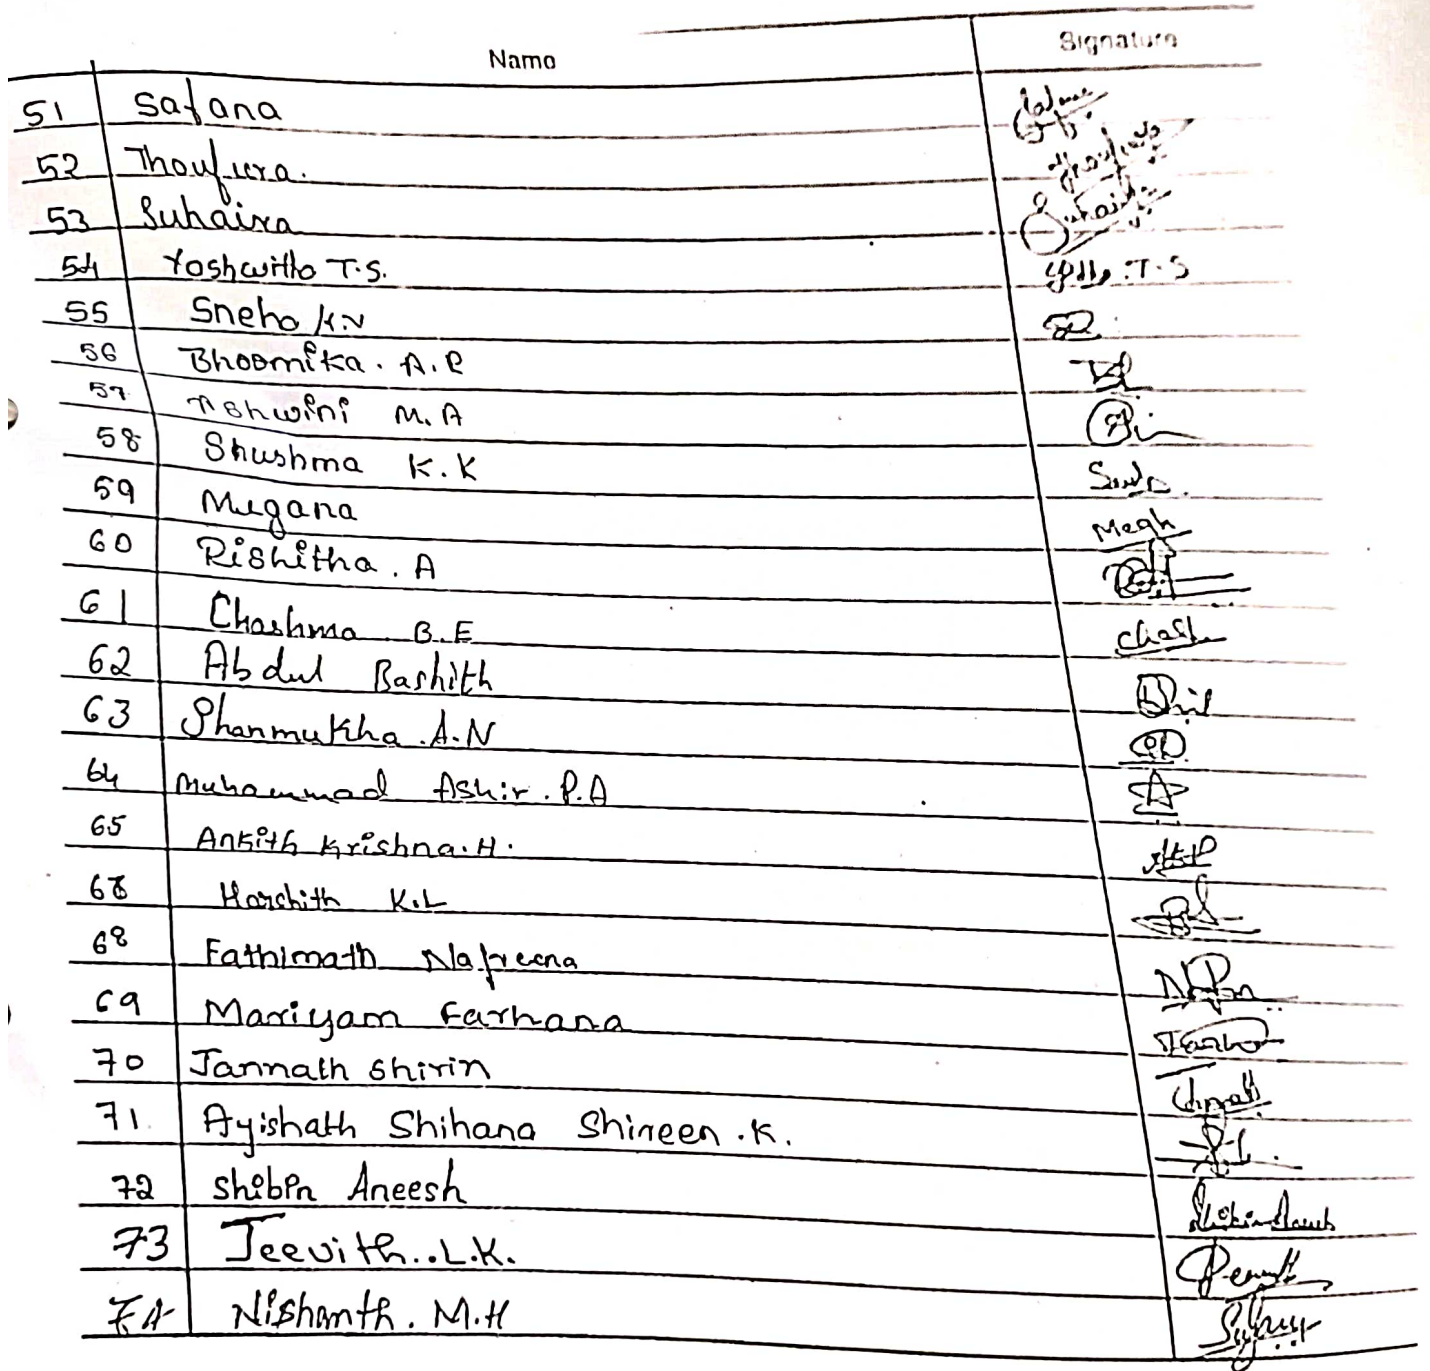 Name Signature
51 Safana
52 Thoufeera.
53 Suhaira Suhaira
54 Yoshwitha T.S. T.S
55 Sneha K.N
56 Bhoomika. A.P
57 Ashwini M.A
58 Shushma K.K
59 Megana Megh
60 Rishitha. A
61 Chashma B.E Chash
62 Abdul Bashith
63 Shanmukha.A.N
64 Muhammad Ashir.P.A
65 Ankith Krishna.H.
68 Harshith K.L
68 Fathimath Nafreena
69 Mariyam Farhana Farha
70 Jannath shirin
71. Ayishath Shihana Shireen.K.
72 Shibin Aneesh
73 Jeevith..L.K.
74 Nishanth. M.H